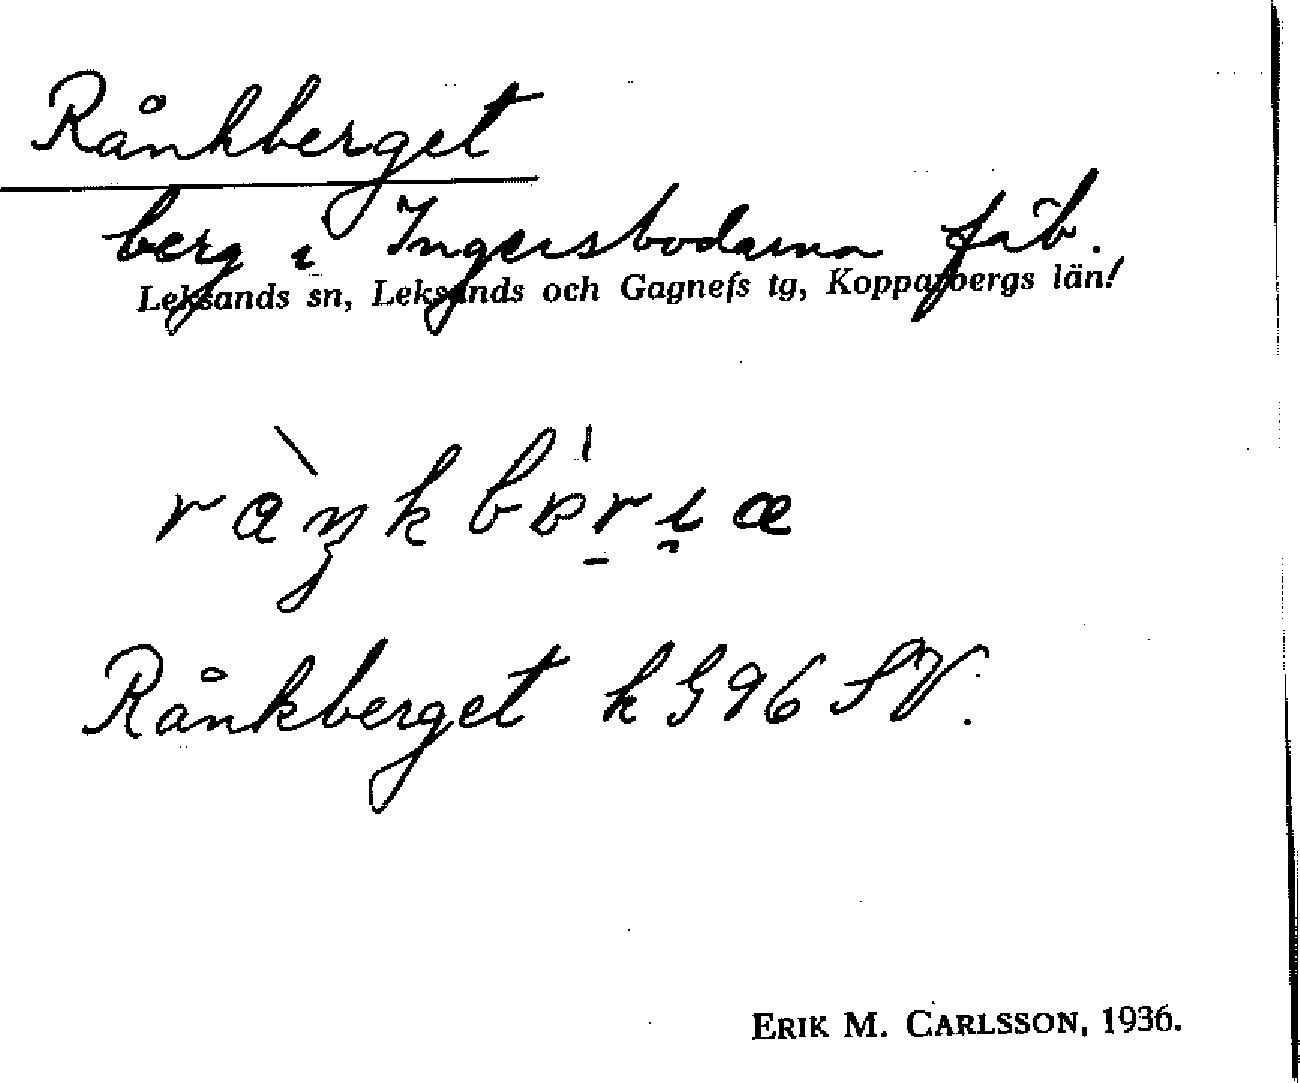 Rånkberget
berg i Ingersbodarna fäb.
Leksands sn, Leksands och Gagnefs tg, Kopparbergs län.
Rånkberget k G96 SV.
ERIK M. CARLSSON, 1936.